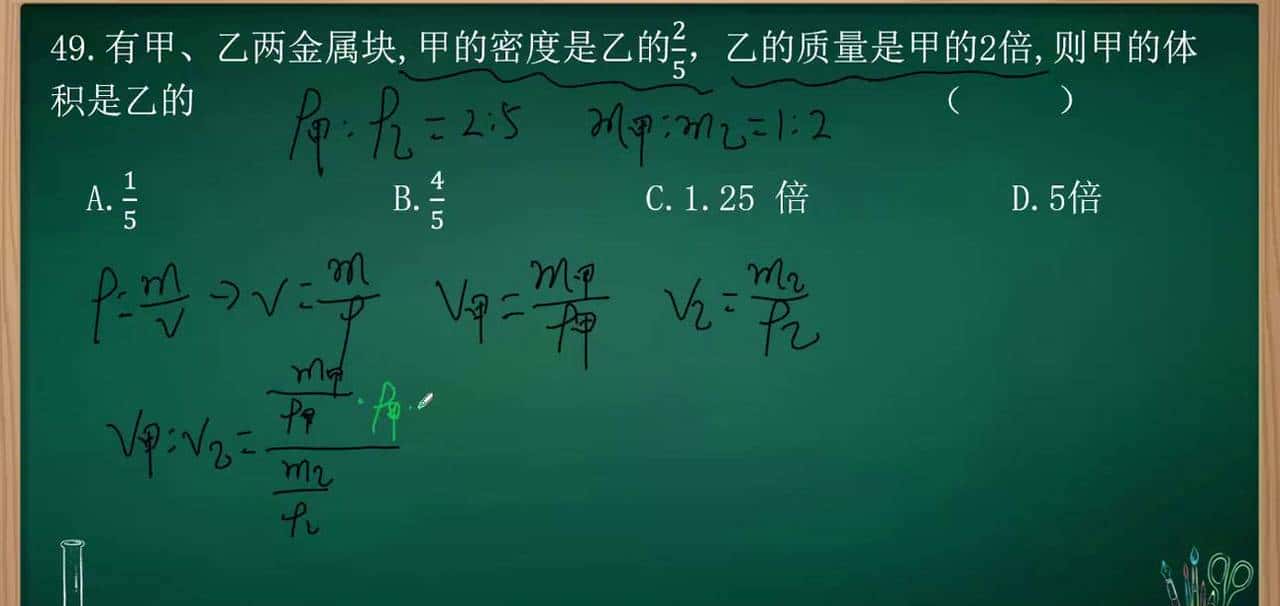 49.有甲、乙两金属块,甲的密度是乙的2/5，乙的质量是甲的2倍,则甲的体
积是乙的 （ ）
ρ甲:ρ乙=2:5 m甲:m乙=1:2
A.1/5 B.4/5 C.1.25 倍 D.5倍
ρ=m/V→V=m/ρ V甲=m甲/ρ甲 V乙=m乙/ρ乙
V甲:V乙=(m甲/ρ甲·ρ甲·)/(m乙/ρ乙)